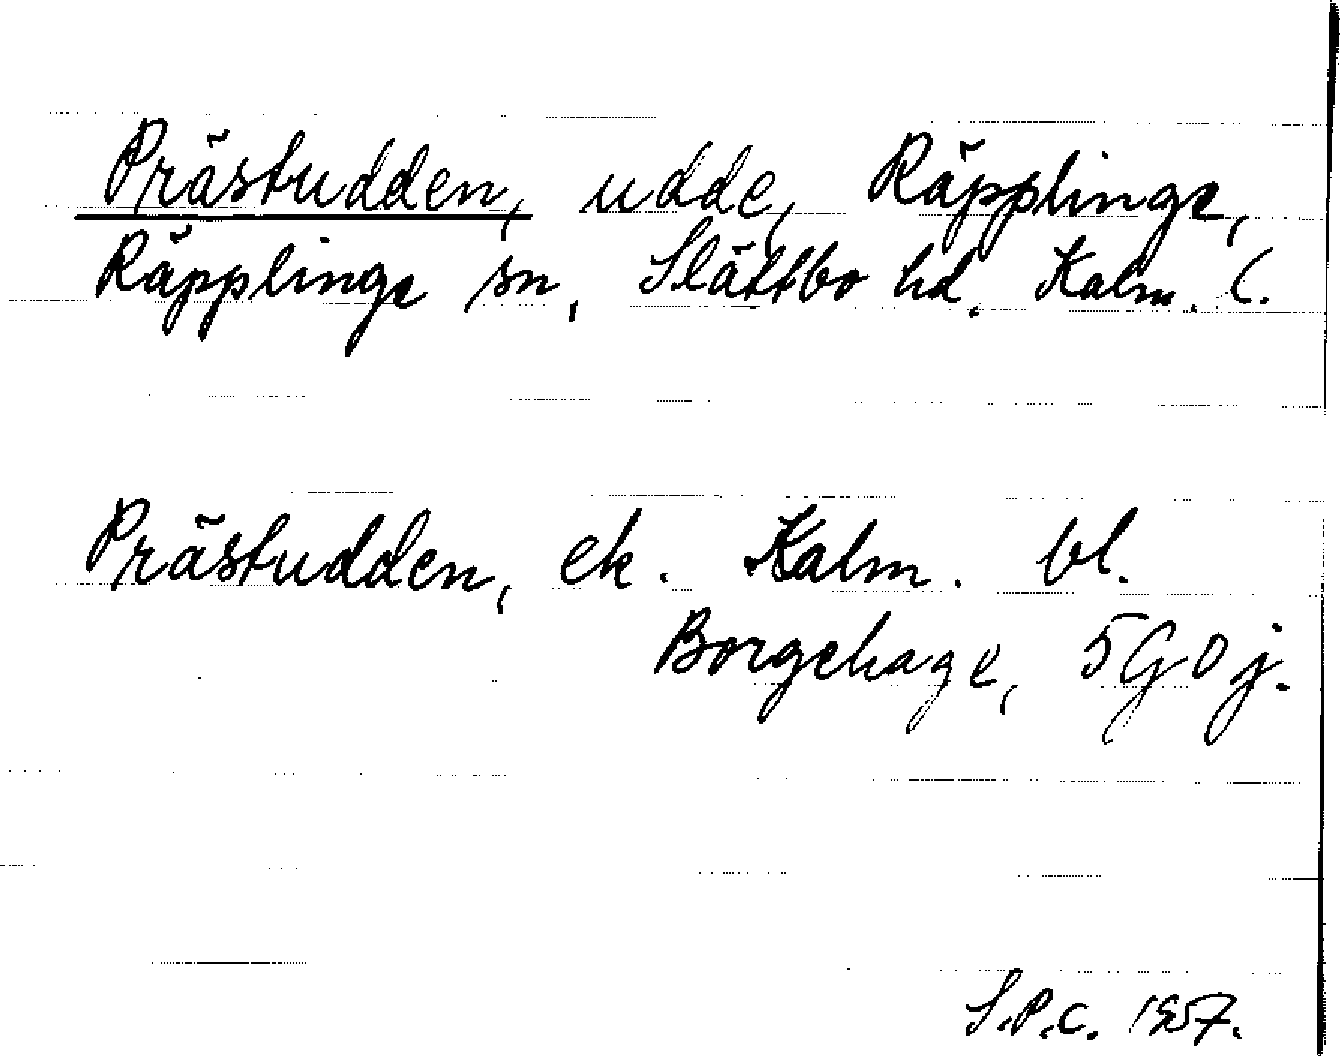 Prästudden, udde, Räpplinge,
Räpplinge sn, Slättbo hd. Kalm. l.
Prästudden, ek. Kalm. bl.
Borgehage, 5G0j.
S.P.C. 1957.